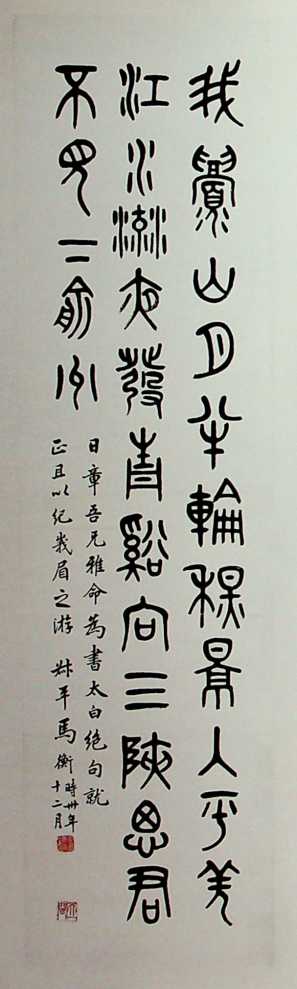 我眉山月半輪秋景入平羌
江水流夜發青谿向三陝思君
不見下俞州
日章吾兄雅命為書太白絕句就
正且以紀峩眉之游 叔平馬衡
時卅年
十二月